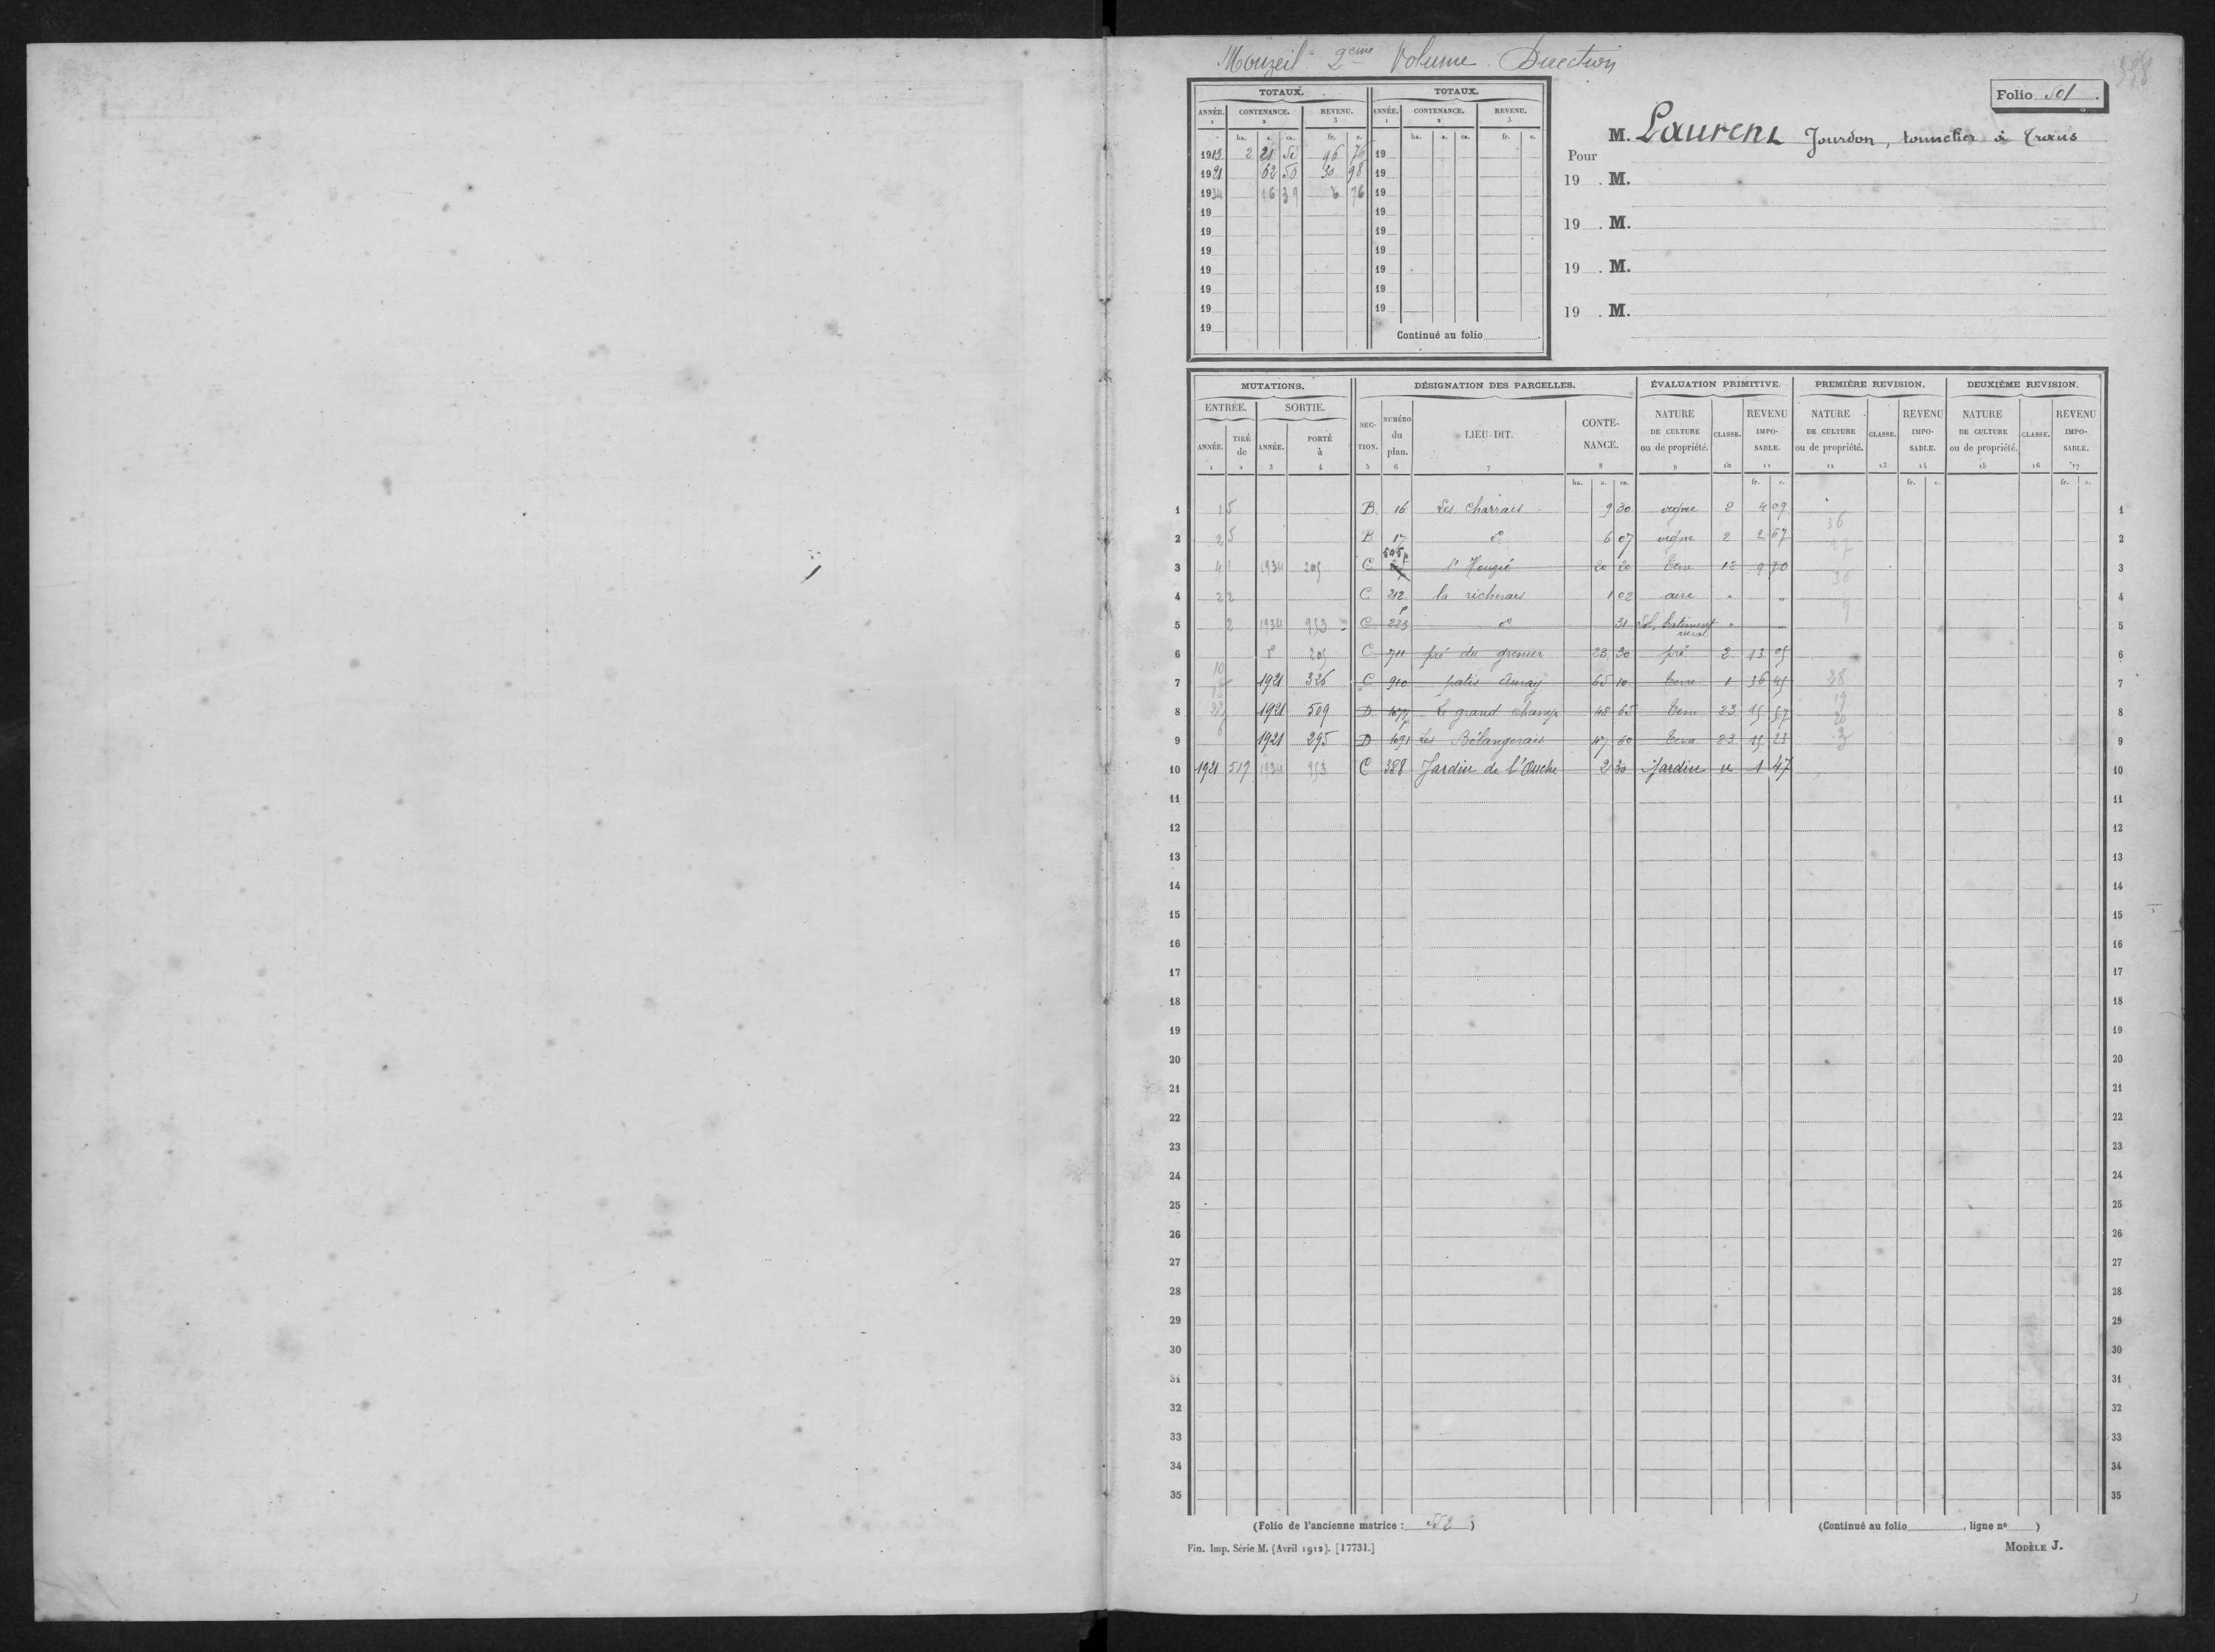 Mouzeil. 2eme Volume. Direction
358
Folio 501.
TOTAUX. TOTAUX.
ANNÉE. CONTENANCE. REVENU. ANNÉE. CONTENANCE. REVENU.
1 2 3 1 2 3
ha. a. ca. fr. c. ha. a. ca. fr. c.
1913 2 21 50 96 76 19
1921 62 50 30 98 19
1934 16 39 6 76 19
19 19
19 19
19 19
19 19
19 19
19 19
19
Continué au folio
M. Laurent Jourdon, tonnelier à Trans
Pour
19 . M.
19 . M.
19 . M.
19 . M.
MUTATIONS. DÉSIGNATION DES PARCELLES. ÉVALUATION PRIMITIVE. PREMIÈRE REVISION. DEUXIÈME REVISION.
ENTRÉE. SORTIE. SECTION. NUMÉRO du plan. LIEU-DIT. CONTENANCE. NATURE DE CULTURE ou de propriété. CLASSE. REVENU IMPOSABLE. NATURE DE CULTURE ou de propriété. CLASSE. REVENU IMPOSABLE. NATURE DE CULTURE ou de propriété. CLASSE. REVENU IMPOSABLE.
ANNÉE. TIRÉ de ANNÉE. PORTÉ à
1 2 3 4 5 6 7 8 9 10 11 12 13 14 15 16 17
ha. a. ca. fr. c. fr. c. fr. c.
1 B 16 Les Charrais 9 30 vigne 2 4 09 1
2 B 17 do 6 07 vigne 2 2 67 2
3 1934 205 C 20 20 Terre 12 9 70 3
4 C 212 la richerais 1 02 aire " " 4
5 1934 953 C 223 do 31 Sol, batiment rural " 5
6 do 205 C 711 pré du grenier 23 30 pré 2 13 05 6
7 1921 326 C 910 patis Auray 65 10 Terre 1 36 45 7
8 1921 509 D Le grand champ 48 65 Terre 23 15 57 8
9 1921 295 D 1091 Les Bélangerais 47 60 Terre 23 15 23 9
10 1921 517 1934 953 C 388 Jardin de l'Ouche 2 30 Jardin u 1 47 10
11 11
12 12
13 13
14 14
15 15
16 16
17 17
18 18
19 19
20 20
21 21
22 22
23 23
24 24
25 25
26 26
27 27
28 28
29 29
30 30
31 31
32 32
33 33
34 34
35 35
(Folio de l'ancienne matrice : 552 )
(Continué au folio , ligne no )
Fin. Imp. Série M. (Avril 1912). [17731.]
MODÈLE J.